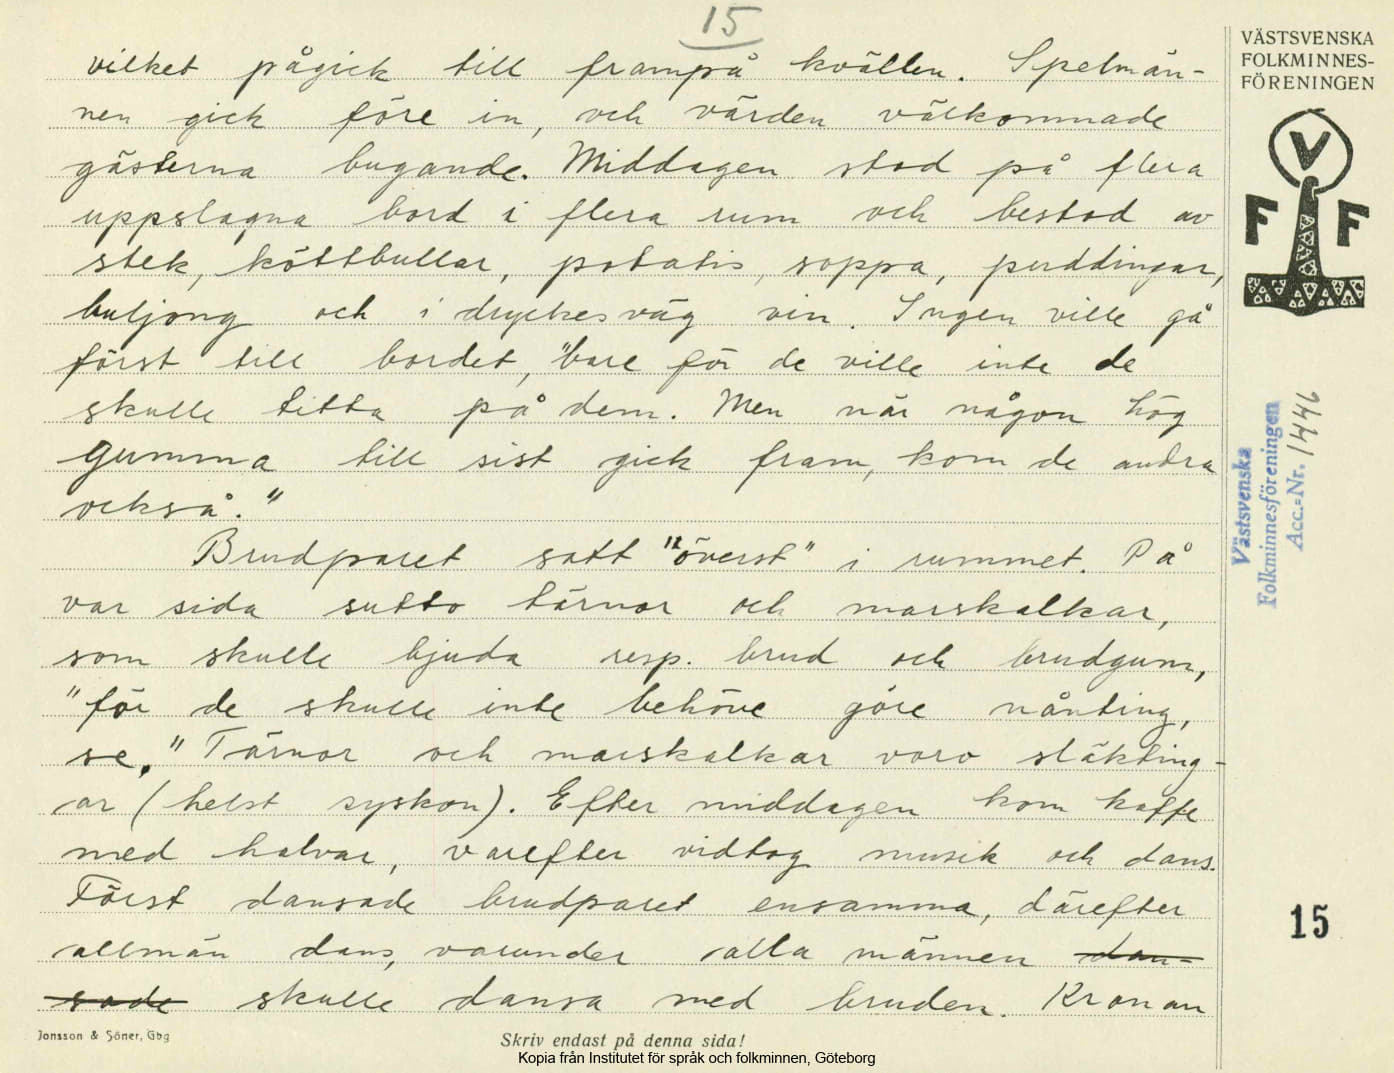 15
vilket pågick till frampå kvällen. Spelmän-
nen gick före in, och värden välkomnade
gästerna bugande. Middagen stod på flera
uppslagna bord i flera rum och bestod av
stek, köttbullar, potatis, soppa, puddingar,
buljong och i dryckesväg vin. Ingen ville gå
först till bordet, "bare för de ville inte de
skulle titta på dem. Men när någon hög
gumma till sist gick fram, kom de andra
också."
Brudparet satt "överst" i rummet. På
var sida sutto tärnor och marskalkar,
som skulle bjuda resp. brud och brudgum,
"för de skulle inte behöve göre nånting,
se." Tärnor och marskalkar voro släkting-
ar (helst syskon). Efter middagen kom kaffe
med halvar, varefter vidtog musik och dans.
Först dansade brudparet ensamma, därefter
allmän dans, varunder alla männen dan-
sade skulle dansa med bruden. Kronan
Jonsson & Söner, Gbg
Skriv endast på denna sida!
Kopia från Institutet för språk och folkminnen, Göteborg
VÄSTSVENSKA
FOLKMINNES-
FÖRENINGEN
V
F F
Västsvenska
Folkminnesföreningen
Acc.=Nr. 1446
15